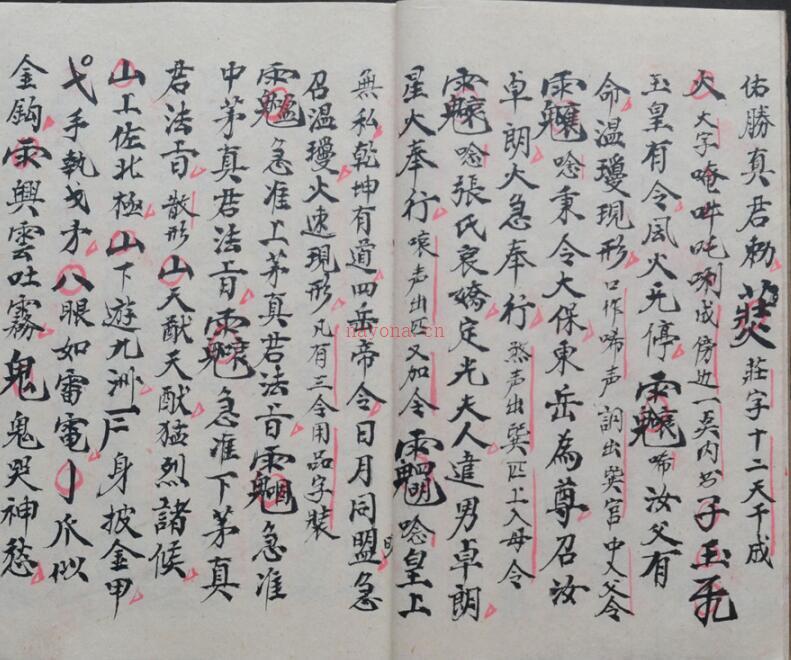 佑勝真君勑 莊字十二天干成
火 火字唵吽吒 成傍边一 内书子玉
玉皇有令風火无停 唏汝父有
命溫瓊現形 口作唏声 調出巽宮中入父令
唸東令大保東岳為尊召汝
卓朗火急奉行 声出巽 上入母令
唸張氏哀嬌定光夫人遣男卓朗
星火奉行 声出 又加令 唸皇上
無私乾坤有道四岳帝令日月同盟急
召溫瓊火速現形 凡有三令用品字裝
急准上茅真君法旨 急准
中茅真君法旨 急准下茅真
君法旨 散形 山天猷天猷猛烈諸侯
山上佐北極山下遊九洲 身披金甲
弋手執戈矛八眼如雷電亅爪似
金鈎雨興雲吐霧鬼鬼哭神愁
nayona.cn